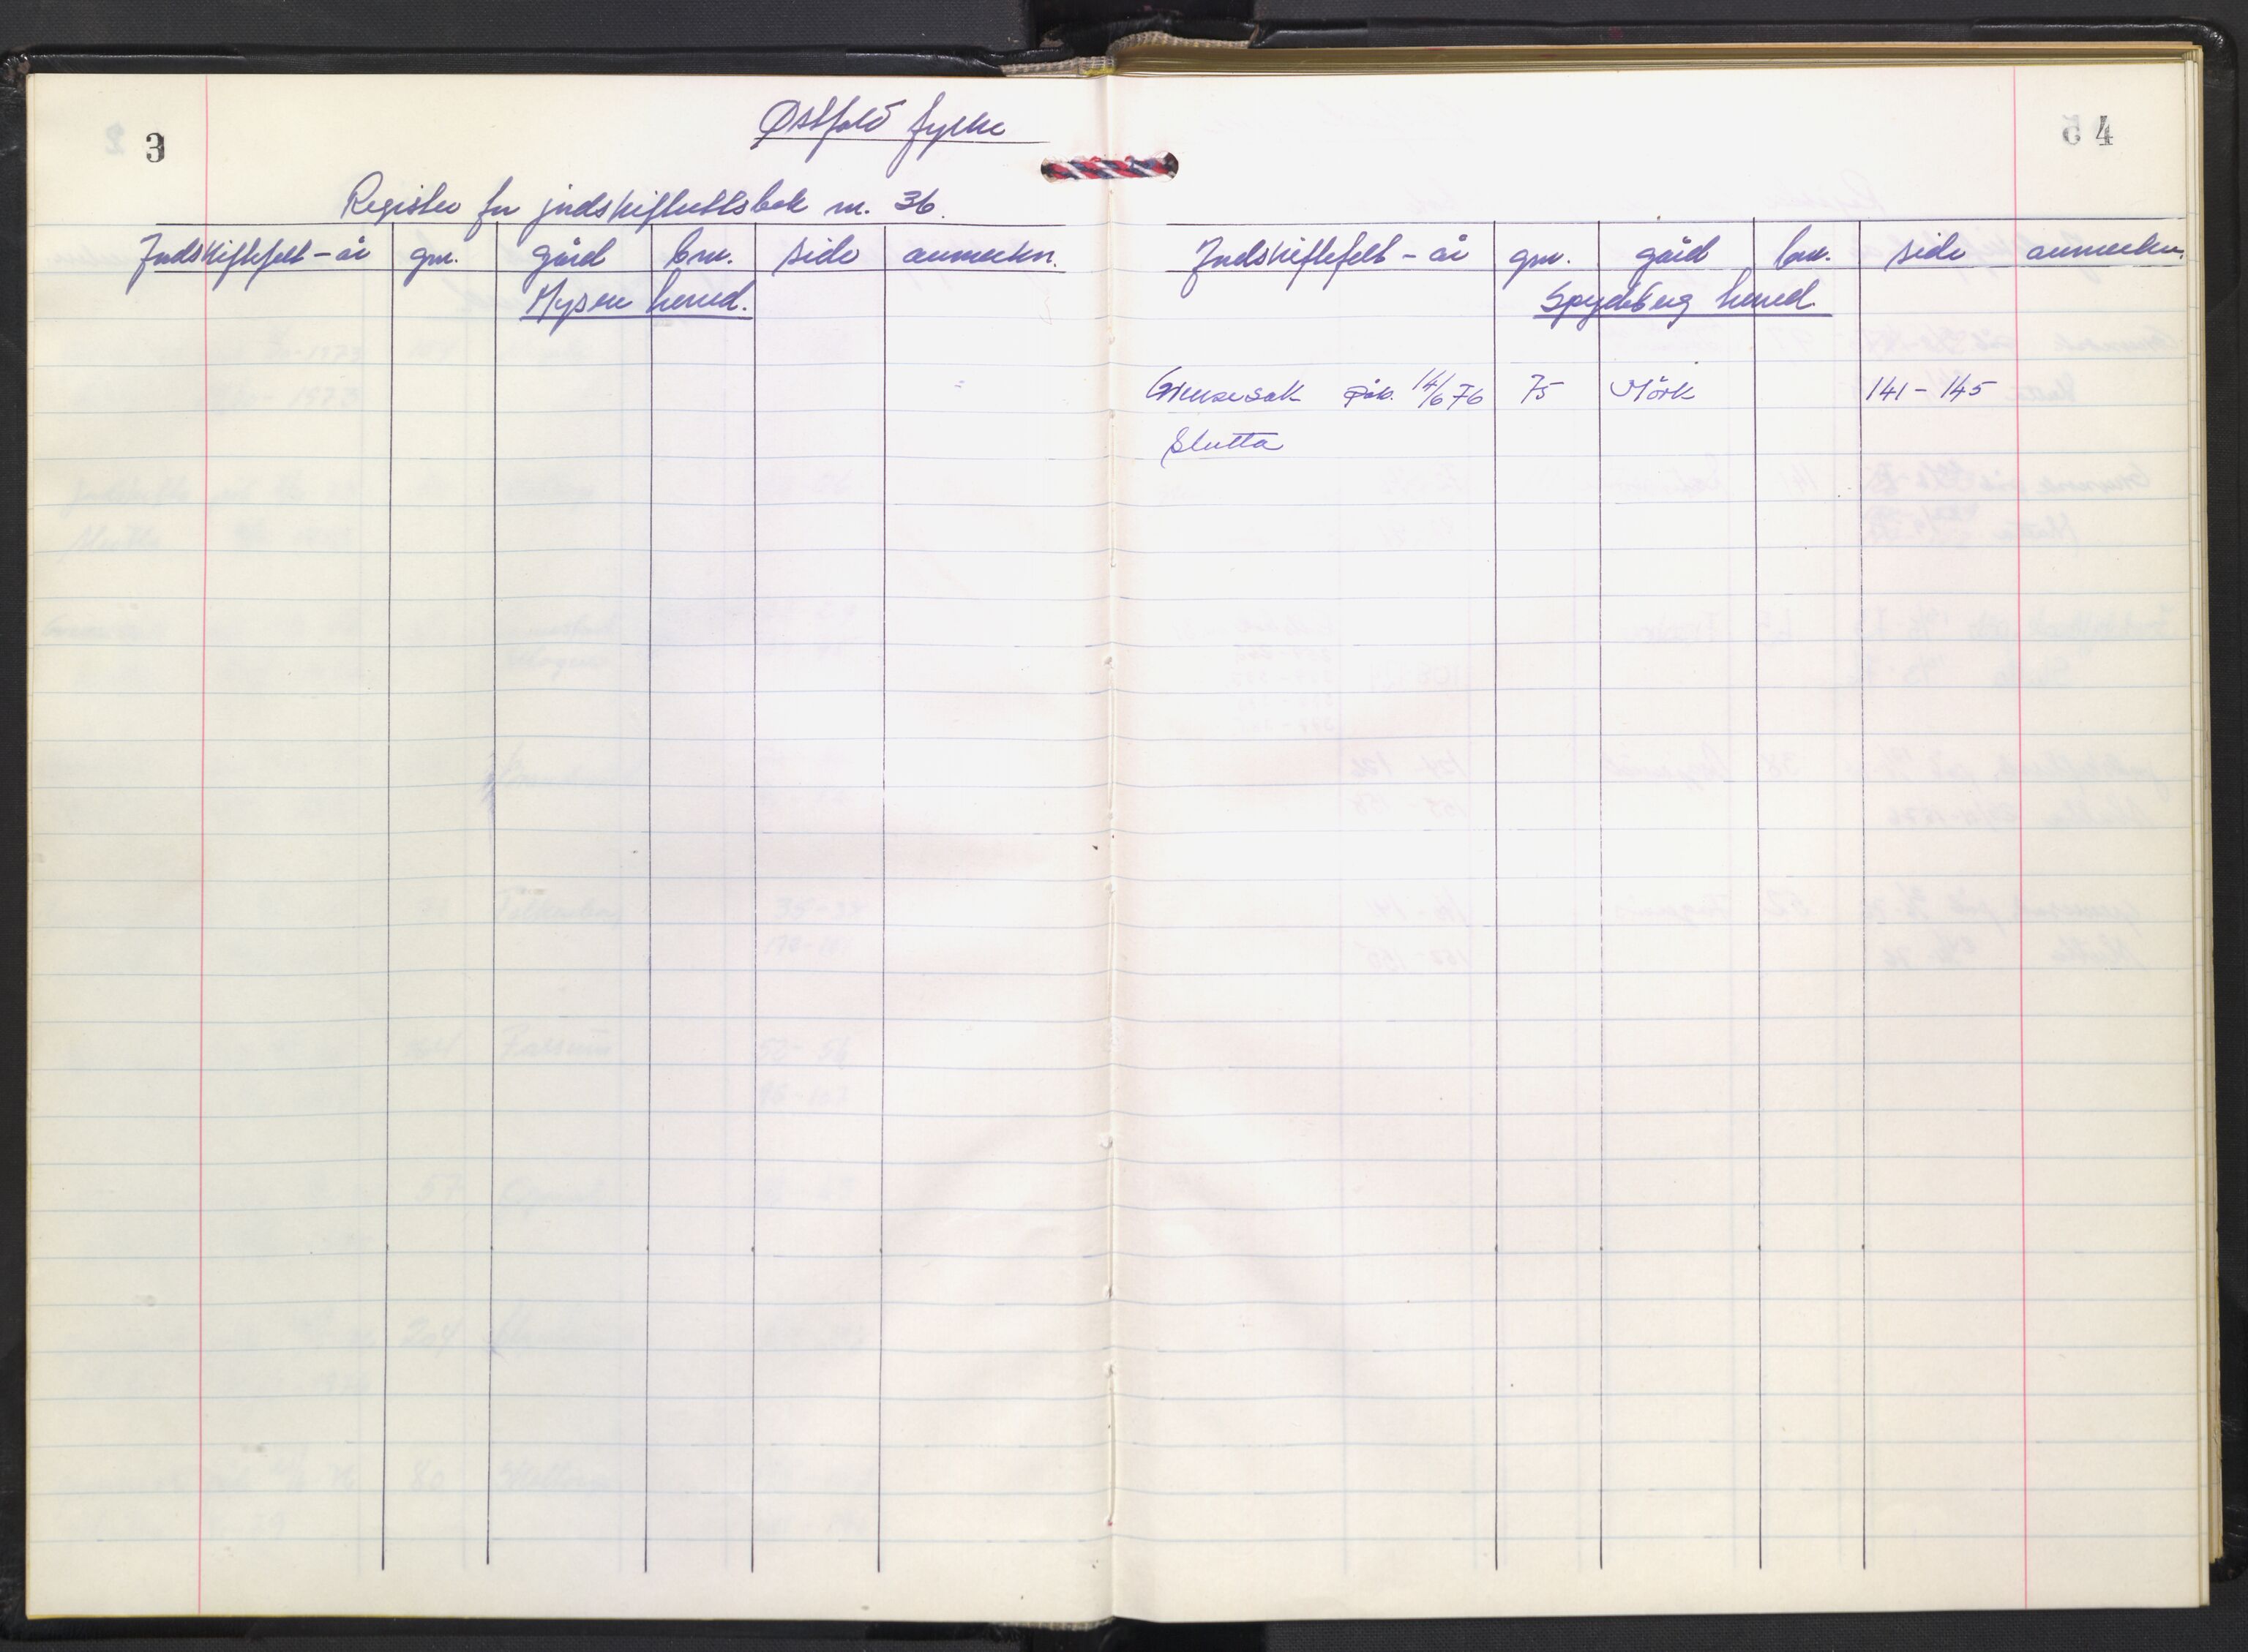 3
Østfold fylke
Register for jordskifterettsbok nr. 36.
Jordskiftefelt - år gnr. gård bnr. side anmerkn.
Mysen herred.
4
Jordskiftefelt - år gnr. gård bnr. side anmerkn.
Spydeberg herred
Grensesak påb. 14/6 76 75 Mörk 141 - 145
Slutta